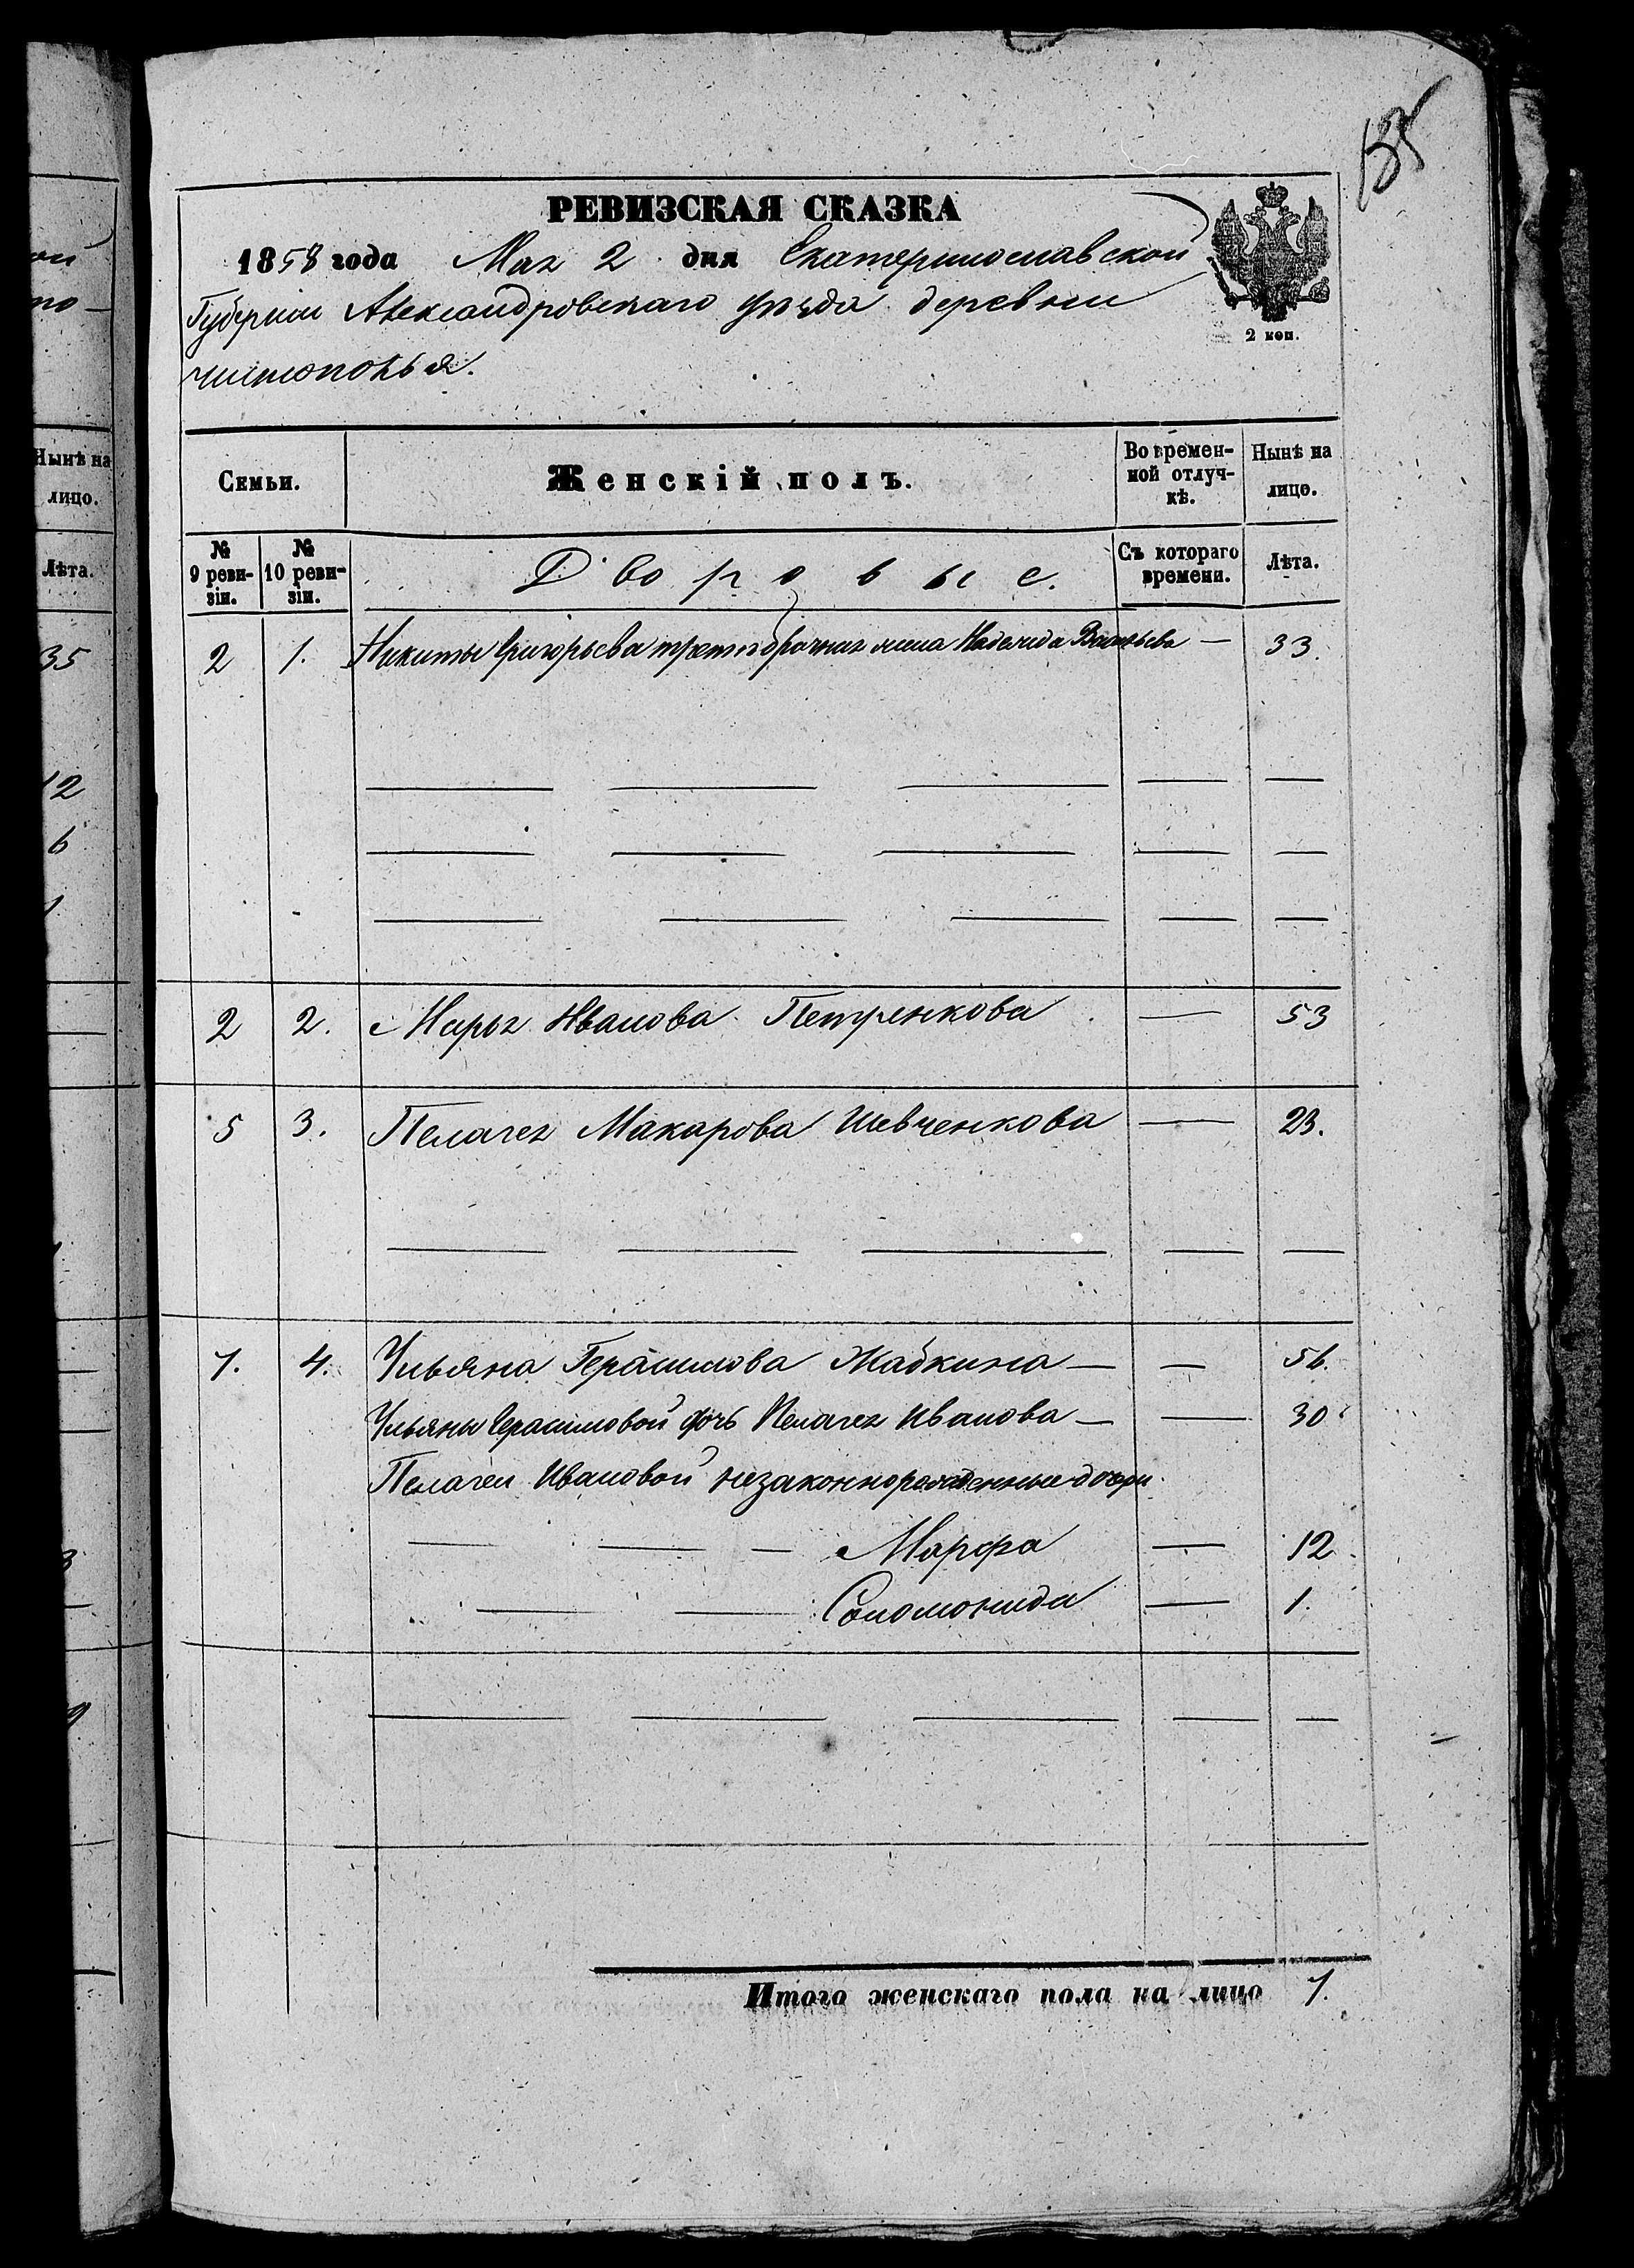 135
РЕВИЗСКАЯ СКАЗКА
1858 года Мая 2 дня Екатеринославской
Губерніи Александровскаго уѣзда деревни
Чистополья.
2 коп.
ой
Нынѣ на
лицо.
Лѣта.
35
12
6
1
Семьи.
Женскій полъ.
Во времен-
ной отлуч-
кѣ.
Нынѣ на
лицо.
№
9 реви-
зіи.
№
10 реви-
зіи.
Дворовые.
Съ котораго
времени.
Лѣта.
2 1. Никиты Григорьева третобрачная жена Надежда Васильева — 33.
2 2. Марья Иванова Петренкова — 53
5 3. Пелагея Макарова Шевченкова — 23.
7. 4. Ульяна Герасимова Жабкина — — 56.
Ульяны Герасимовой дочь Пелагея Иванова — — 30
Пелагеи Ивановой незаконнорожденные дочери
— — — Марфа — 12.
— — Соломонида — 1.
Итого женскаго пола на лицо 7.